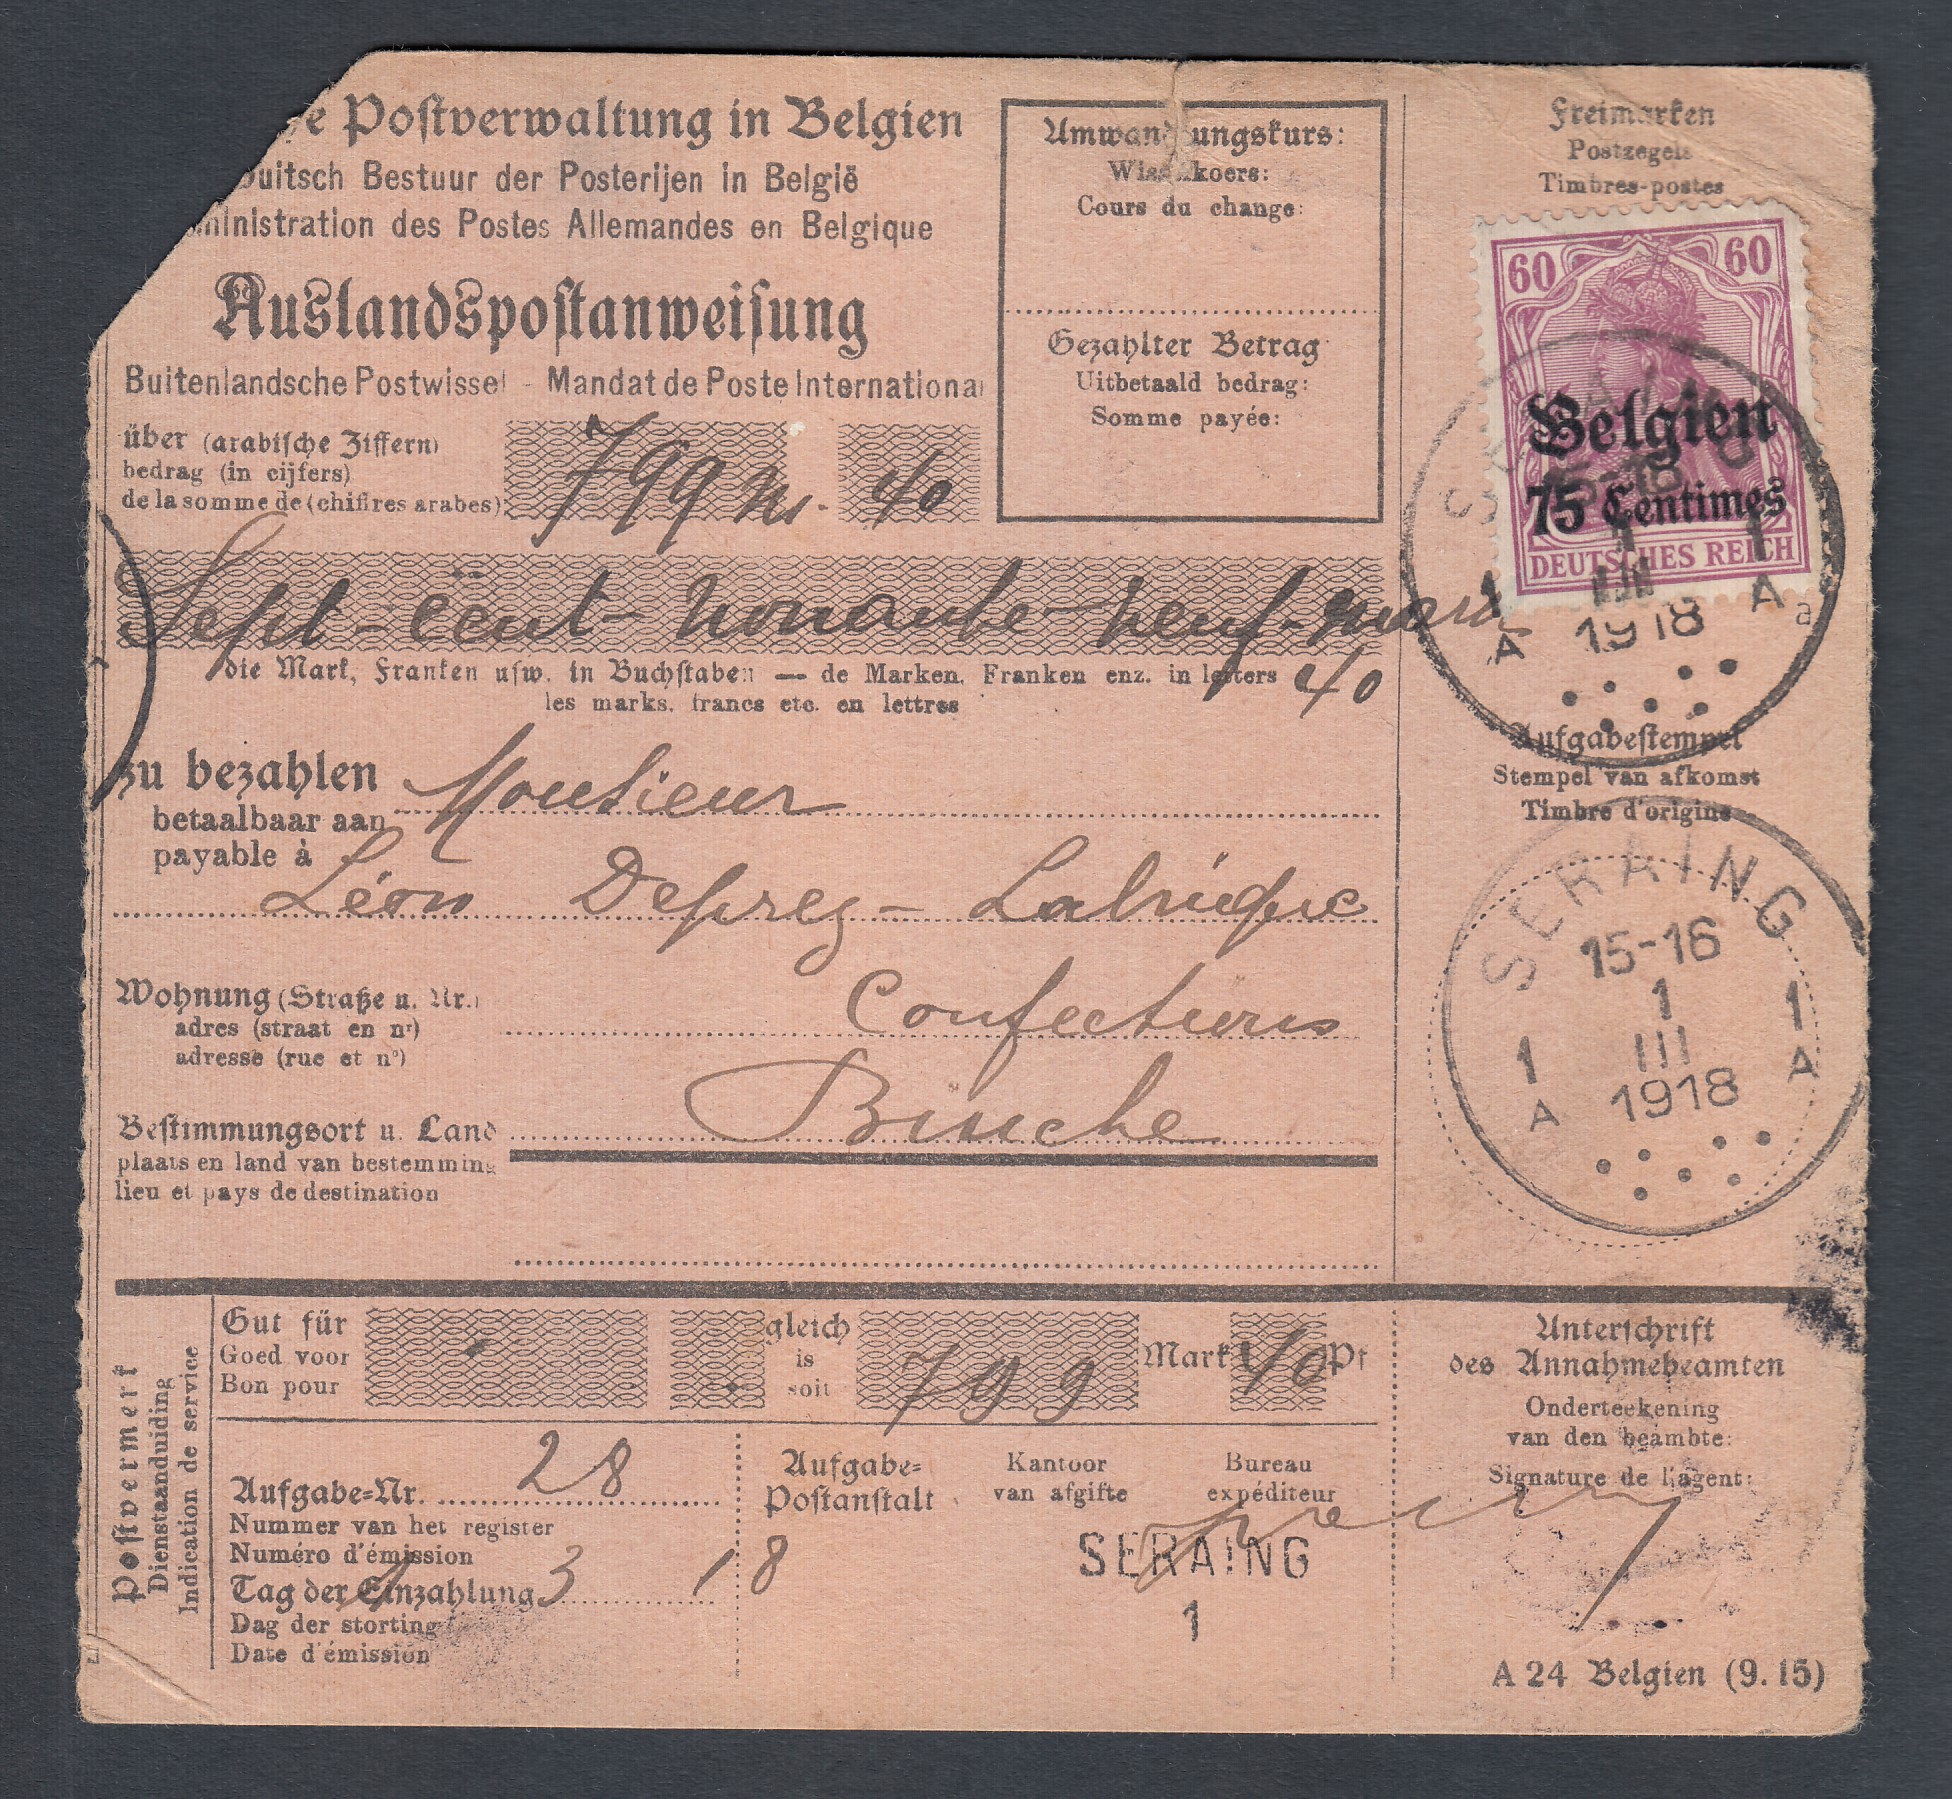 e Postverwaltung in Belgien
Duitsch Bestuur der Posterijen in België
ministration des Postes Allemandes en Belgique
Auslandspostanweisung
Buitenlandsche Postwissel - Mandat de Poste International
über (arabische Ziffern)
bedrag (in cijfers)
de la somme de (chiffres arabes)
799 M. 40
Sept-cent-nonante-neuf-marcs
40
die Mark, Franken usw. in Buchstaben — de Marken, Franken enz. in letters
les marks, francs etc. en lettres
zu bezahlen
betaalbaar aan
payable à
Monsieur
Léon Deprez-Labrique
Wohnung (Straße u. Nr.)
adres (straat en nr)
adresse (rue et n°)
Confections
Binche
Bestimmungsort u. Land
plaats en land van bestemming
lieu et pays de destination
Umwandlungskurs:
Wisselkoers:
Cours du change:
Gezahlter Betrag
Uitbetaald bedrag:
Somme payée:
Freimarken
Postzegels
Timbres-postes
60 60
Belgien
75 Centimes
DEUTSCHES REICH
SERAING
15-16
1
III
1918
1 A
1 A
a
Aufgabestempel
Stempel van afkomst
Timbre d'origine
SERAING
15-16
1
III
1918
1 A
1 A
Postvermerk
Dienstaanduiding
Indication de service
Gut für
Goed voor
Bon pour
gleich
is
soit
799 Mark 40 Pf
Aufgabe-Nr. 28
Nummer van het register
Numéro d'émission
Tag der Einzahlung 1 3 18
Dag der storting
Date d'émission
Aufgabe-
Postanstalt
Kantoor
van afgifte
Bureau
expéditeur
SERAING
1
Unterschrift
des Annahmebeamten
Onderteekening
van den beambte:
Signature de l'agent:
A 24 Belgien (9. 15)